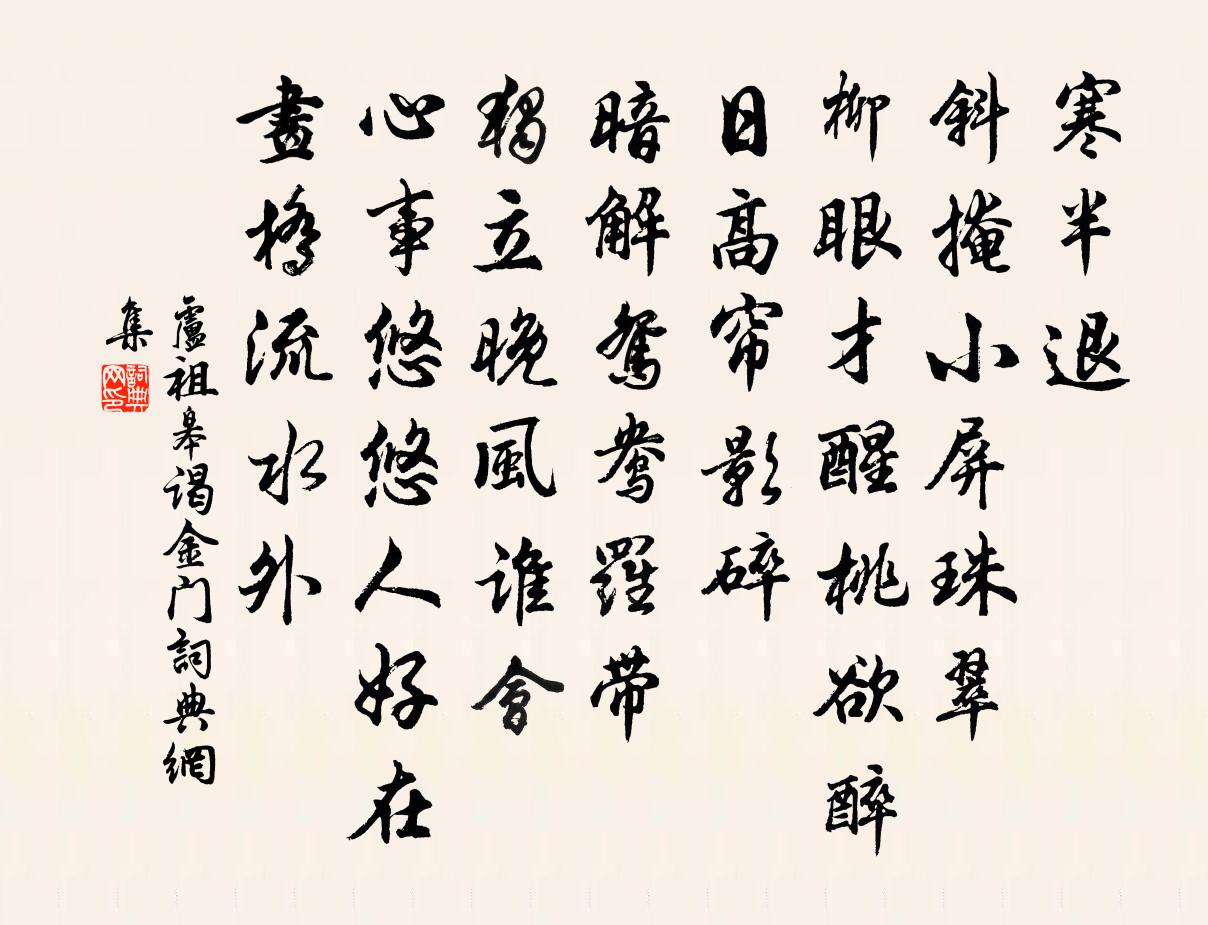 寒半退
斜掩小屏珠翠
柳眼才醒桃欲醉
日高帘影碎
暗解鸳鸯羅带
獨立晚風谁會
心事悠悠人好在
畫橋流水外
盧祖皋谒金门詞典網
集
詞典
网印